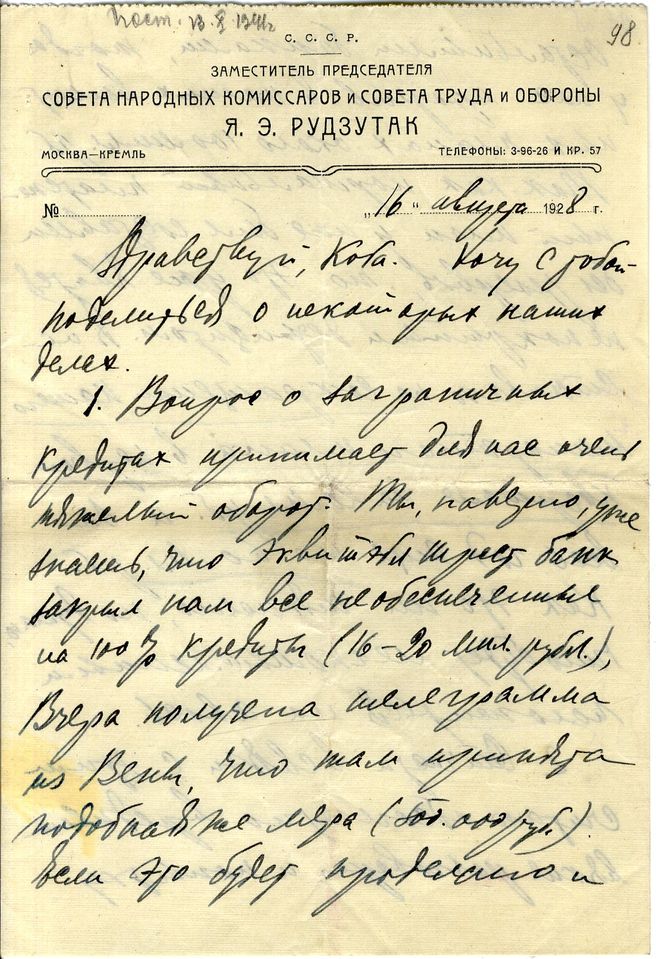 Пост. 13.X 1941г
98
С. С. С. Р.
ЗАМЕСТИТЕЛЬ ПРЕДСЕДАТЕЛЯ
СОВЕТА НАРОДНЫХ КОМИССАРОВ и СОВЕТА ТРУДА и ОБОРОНЫ
Я. Э. РУДЗУТАК
МОСКВА—КРЕМЛЬ
ТЕЛЕФОНЫ: 3-96-26 И КР. 57
№ „16“ августа 1928 г.
Здравствуй, Коба. Хочу с тобой
поделиться о некоторых наших
делах.
1. Вопрос о заграничных
кредитах принимает для нас очень
тяжелый оборот. Ты, наверно, уже
знаешь, что Эквитэбл трест банк
закрыл нам все необеспеченные
на 100% кредиты (16–20 мил. рубл.),
Вчера получена телеграмма
из Вены, что там принята
подобная же мера (800.000 руб.).
Если это будет проделано и